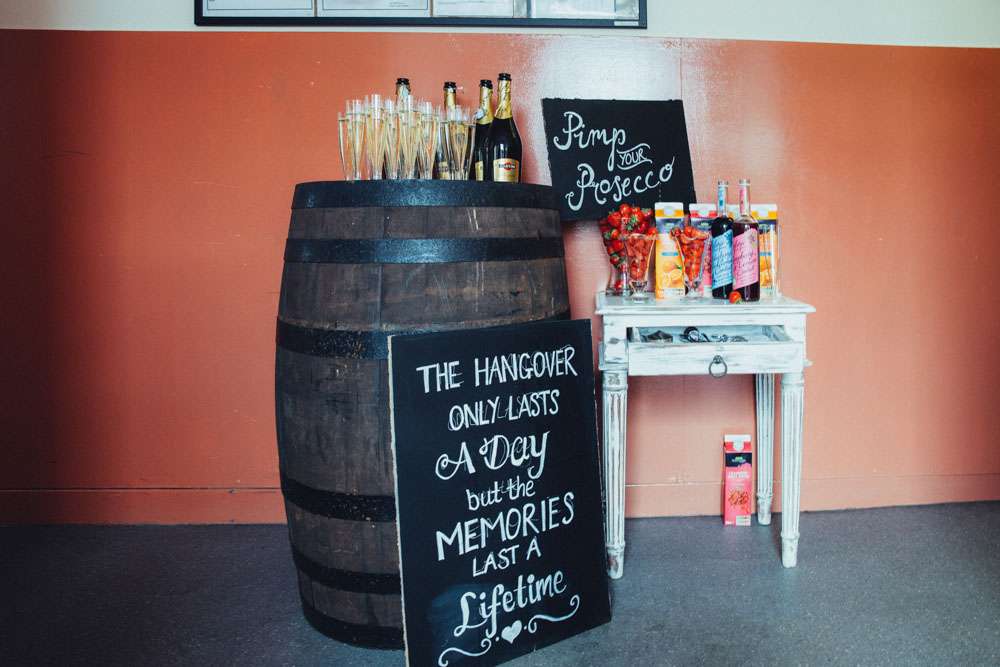 Pimp
YOUR
Prosecco
THE HANGOVER
ONLY LASTS
A Day
but the
MEMORIES
LAST A
Lifetime